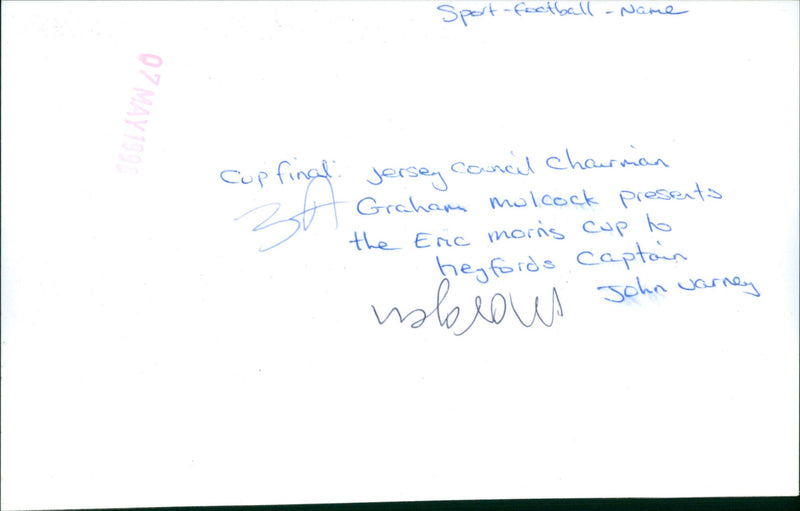 Sport-Football-Name
07 MAY 1996
Cup final: Jersey Council Chairman
3A Graham Mulcock presents
the Eric Morris cup to
heyfords captain
John Varney